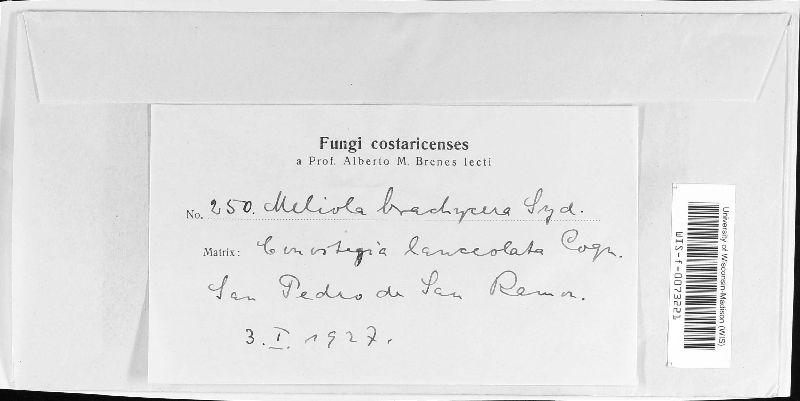 Fungi costaricenses
a Prof. Alberto M. Brenes lecti
No. 250. Meliola brachycera Syd.
Matrix: Conostegia lanceolata Cogn.
San Pedro de San Ramon.
3. I. 1927.
University of Wisconsin-Madison (WIS)
WIS-f-0073221